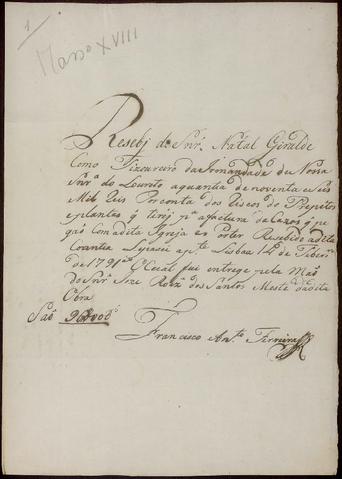 1
Masso XVIII
Resebj do Snr. Natal Giralde
Como Tizoureiro da Irmandade de Nossa
Snrª do Loureto aquantia de noventa e Seis
Mil Reis Por conta dos Riscos do Prospétos
eplantes q̃ tirej pª afactura da Cazas q̃ pe
gaõ Comadita Igreja e Poter Resebido adita
Coantia Lisboa 14 de
de 1791 oCoal fui entrege pela Maõ
do Snr Joze Roiz dos Santos Mestre dadita
Obra
Saõ
Francisco Anto. Ferreira